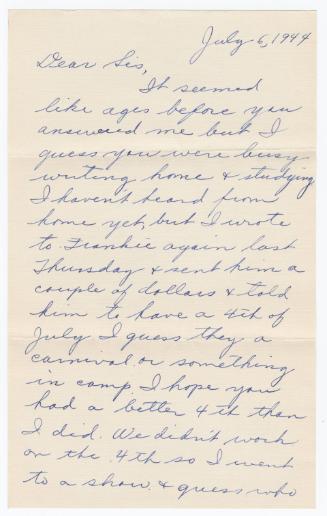 July 6, 1944
Dear Sis,
It seemed
like ages before you
answered me but I
guess you were busy
writing home & studying
I havent heard from
home yet, but I wrote
to Frankie again last
Thursday & sent him a
couple of dollars & told
him to have a 4th of
July I guess they a
carnival or something
in camp. I hope you
had a better 4th than
I did. We didn't work
on the 4th so I went
to a show & guess who